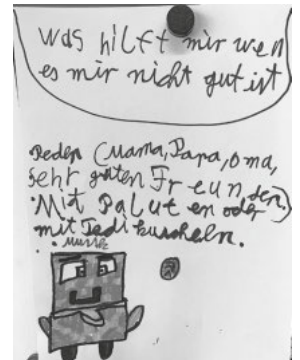 was hilft mir wen
es mir nicht gut ist
Reden (Mama, Papa, oma,
sehr guten Freunden)
Mit Palut en oder
mit Tedi kuscheln.